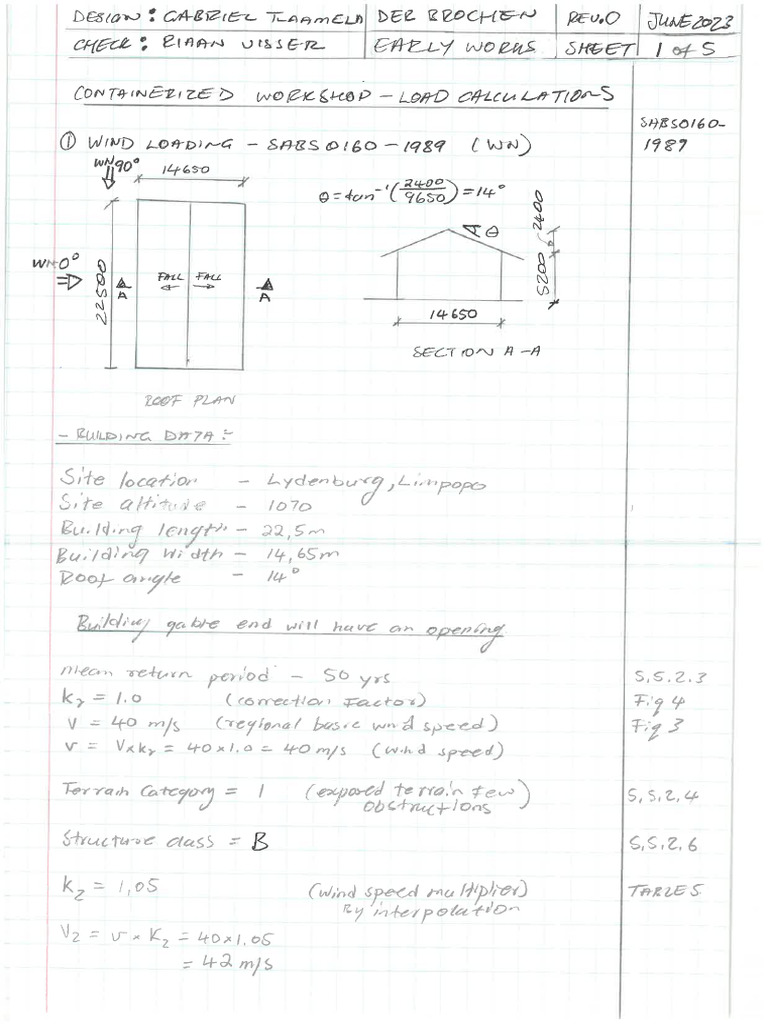 DESIGN: GABRIEL TLAAMELA DER BROCHEN REV.0 JUNE 2023
CHECK: RIAAN VISSER EARLY WORKS SHEET 1 of 5
CONTAINERIZED WORKSHOP - LOAD CALCULATIONS
① WIND LOADING - SABS0160-1989 (WN)
SABS0160-
1989
WN90°
14650
θ = tan⁻¹(2400/9650) = 14°
WN0°
22500
FALL FALL
A A
θ
5200 2400
14650
SECTION A-A
ROOF PLAN
- BUILDING DATA:-
Site location - Lydenburg, Limpopo
Site altitude - 1070
Building length - 22,5m
Building width - 14,65m
Roof angle - 14°
Building gable end will have an opening.
mean return period - 50 yrs 5.5.2.3
kr = 1.0 (correction Factor) Fig 4
V = 40 m/s (regional basic wind speed) Fig 3
v = V×kr = 40×1.0 = 40 m/s (wind speed)
Terrain Category = 1 (exposed terrain few obstructions) 5,5,2,4
Structure class = B 5,5,2,6
kz = 1,05 (wind speed multiplier) TABLE 5
By interpolation
Vz = v × Kz = 40×1.05
= 42 m/s